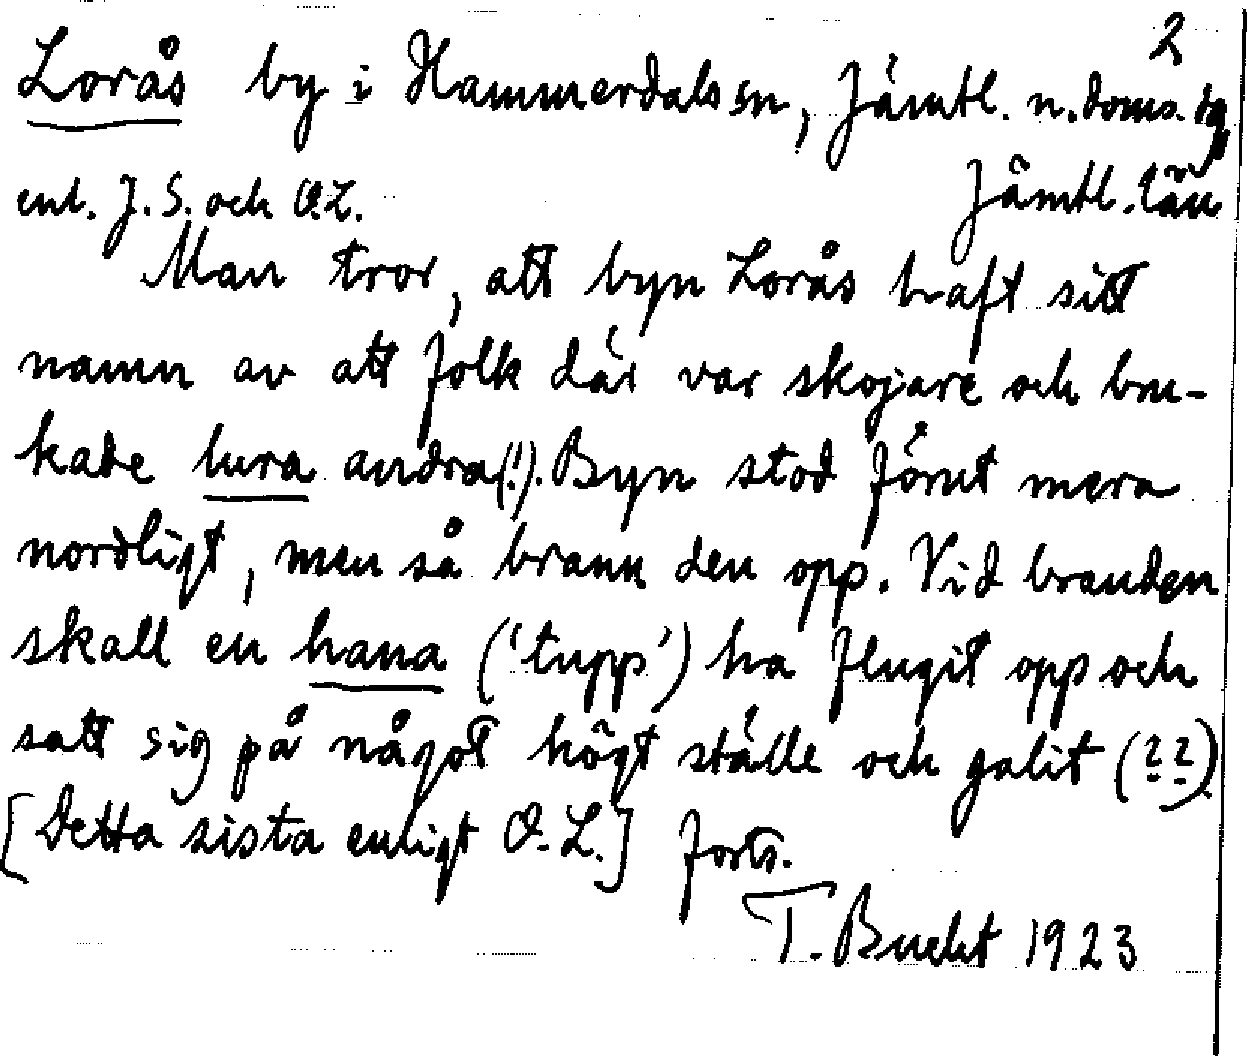 2
Lorås by i Hammerdals sn, Jämtl. n. doms.sg
enl. J. S. och O.L. Jämtl. län
Man tror, att byn Lorås haft sitt
namn av att folk där var skojare och bru-
kade lura andra(!). Byn stod förut mera
nordligt, men så brann den opp. Vid branden
skall en hana ('tupp') ha flugit opp och
satt sig på något högt ställe och galit (??)
[Detta sista enligt O. L.] forts.
T. Bucht 1923